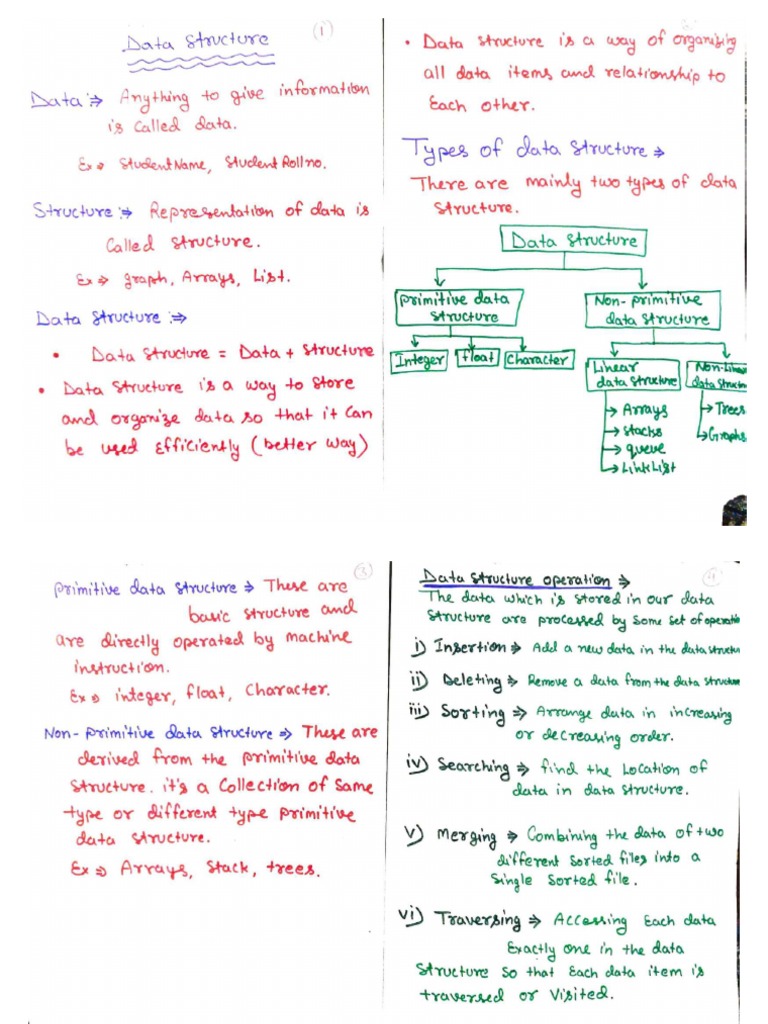 Data Structure
(1)
Data :⇒ Anything to give information
is called data.
Ex ⇒ Student Name, Student Roll no.
Structure :⇒ Representation of data is
called structure.
Ex ⇒ graph, Arrays, List.
Data Structure :⇒
• Data structure = Data + structure
• Data structure is a way to store
and organize data so that it can
be used efficiently (better way)
• Data structure is a way of organizing
all data items and relationship to
each other.
Types of data structure ⇒
There are mainly two types of data
structure.
Data structure
Primitive data
structure
Non-primitive
data structure
Integer
float
Character
Linear
data structure
→ Arrays
→ stacks
→ queue
→ Link List
Non-Linea
data structu
→ Trees
→ Graphs
(3)
Primitive data structure ⇒ These are
basic structure and
are directly operated by machine
instruction.
Ex ⇒ integer, float, character.
Non-primitive data structure ⇒ These are
derived from the primitive data
structure. it's a collection of same
type or different type primitive
data structure.
Ex ⇒ Arrays, stack, trees.
(4)
Data structure operation ⇒
The data which is stored in our data
structure are processed by some set of operatio
i) Insertion ⇒ Add a new data in the data structur
ii) Deleting ⇒ Remove a data from the data structure
iii) Sorting ⇒ Arrange data in increasing
or decreasing order.
iv) Searching ⇒ find the location of
data in data structure.
v) Merging ⇒ Combining the data of two
different sorted files into a
single sorted file.
vi) Traversing ⇒ Accessing each data
exactly one in the data
structure so that each data item is
traversed or visited.